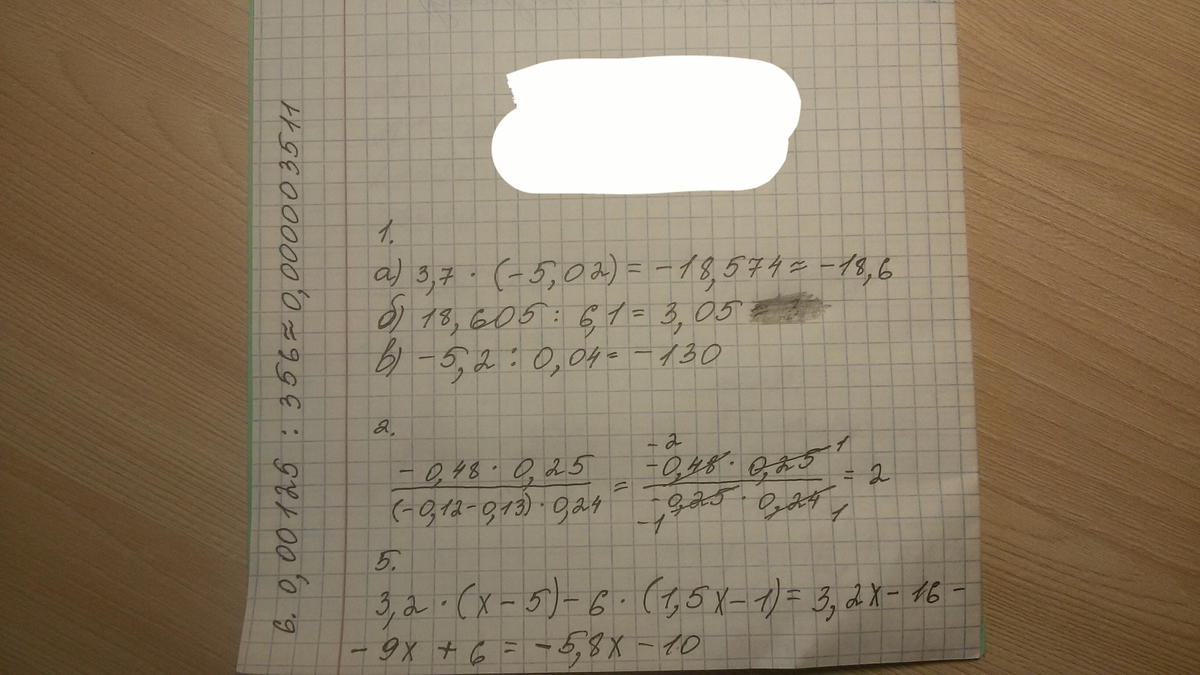 1.
а) 3,7 · (-5,02) = -18,574 ≈ -18,6
б) 18,605 : 6,1 = 3,05
в) -5,2 : 0,04 = -130
2.
-0,48 · 0,25 / (-0,12-0,13) · 0,24 = -2 -0,48 · 0,25 1 / -1 -0,25 · 0,24 1 = 2
5.
3,2 · (x - 5) - 6 · (1,5x - 1) = 3,2x - 16 -
- 9x + 6 = -5,8x - 10
6. 0,00125 : 356 ≈ 0,000003511